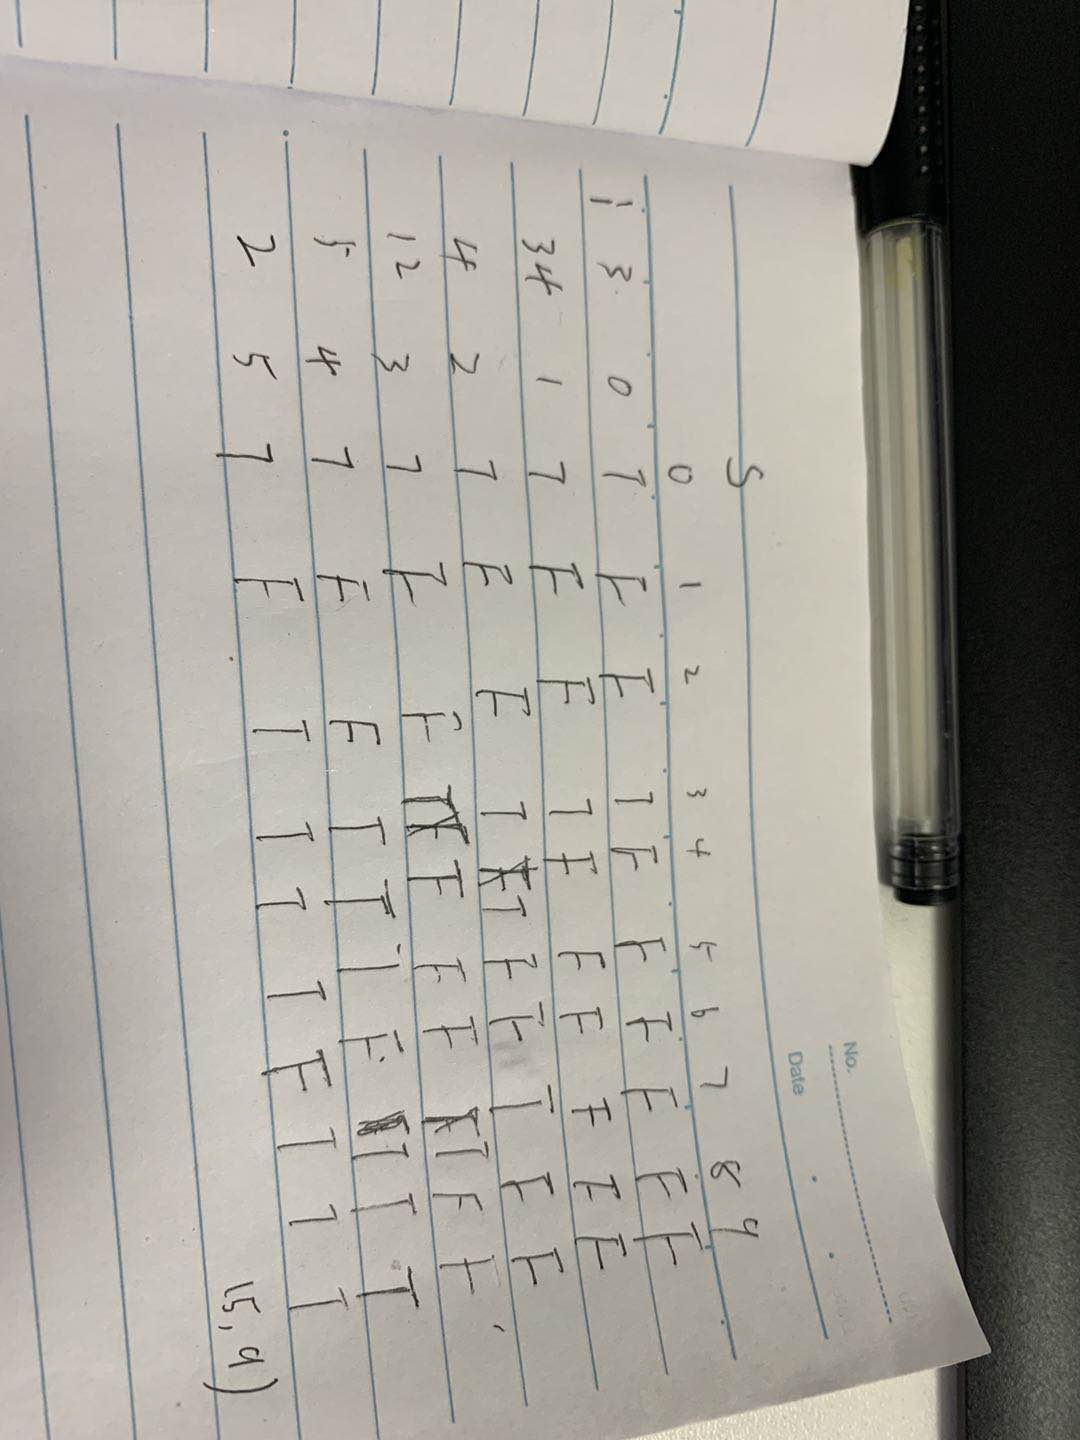 No.
Date
S
0 1 2 3 4 5 6 7 8 9
i 3 0 T F F T F F F F F F
34 1 T F F T F F F F F F
4 2 T F F T T F F T F F
12 3 T F F F F F T F F
5 4 T F F T T T F T T T
2 5 T F T T T T F T T T
(5,9)